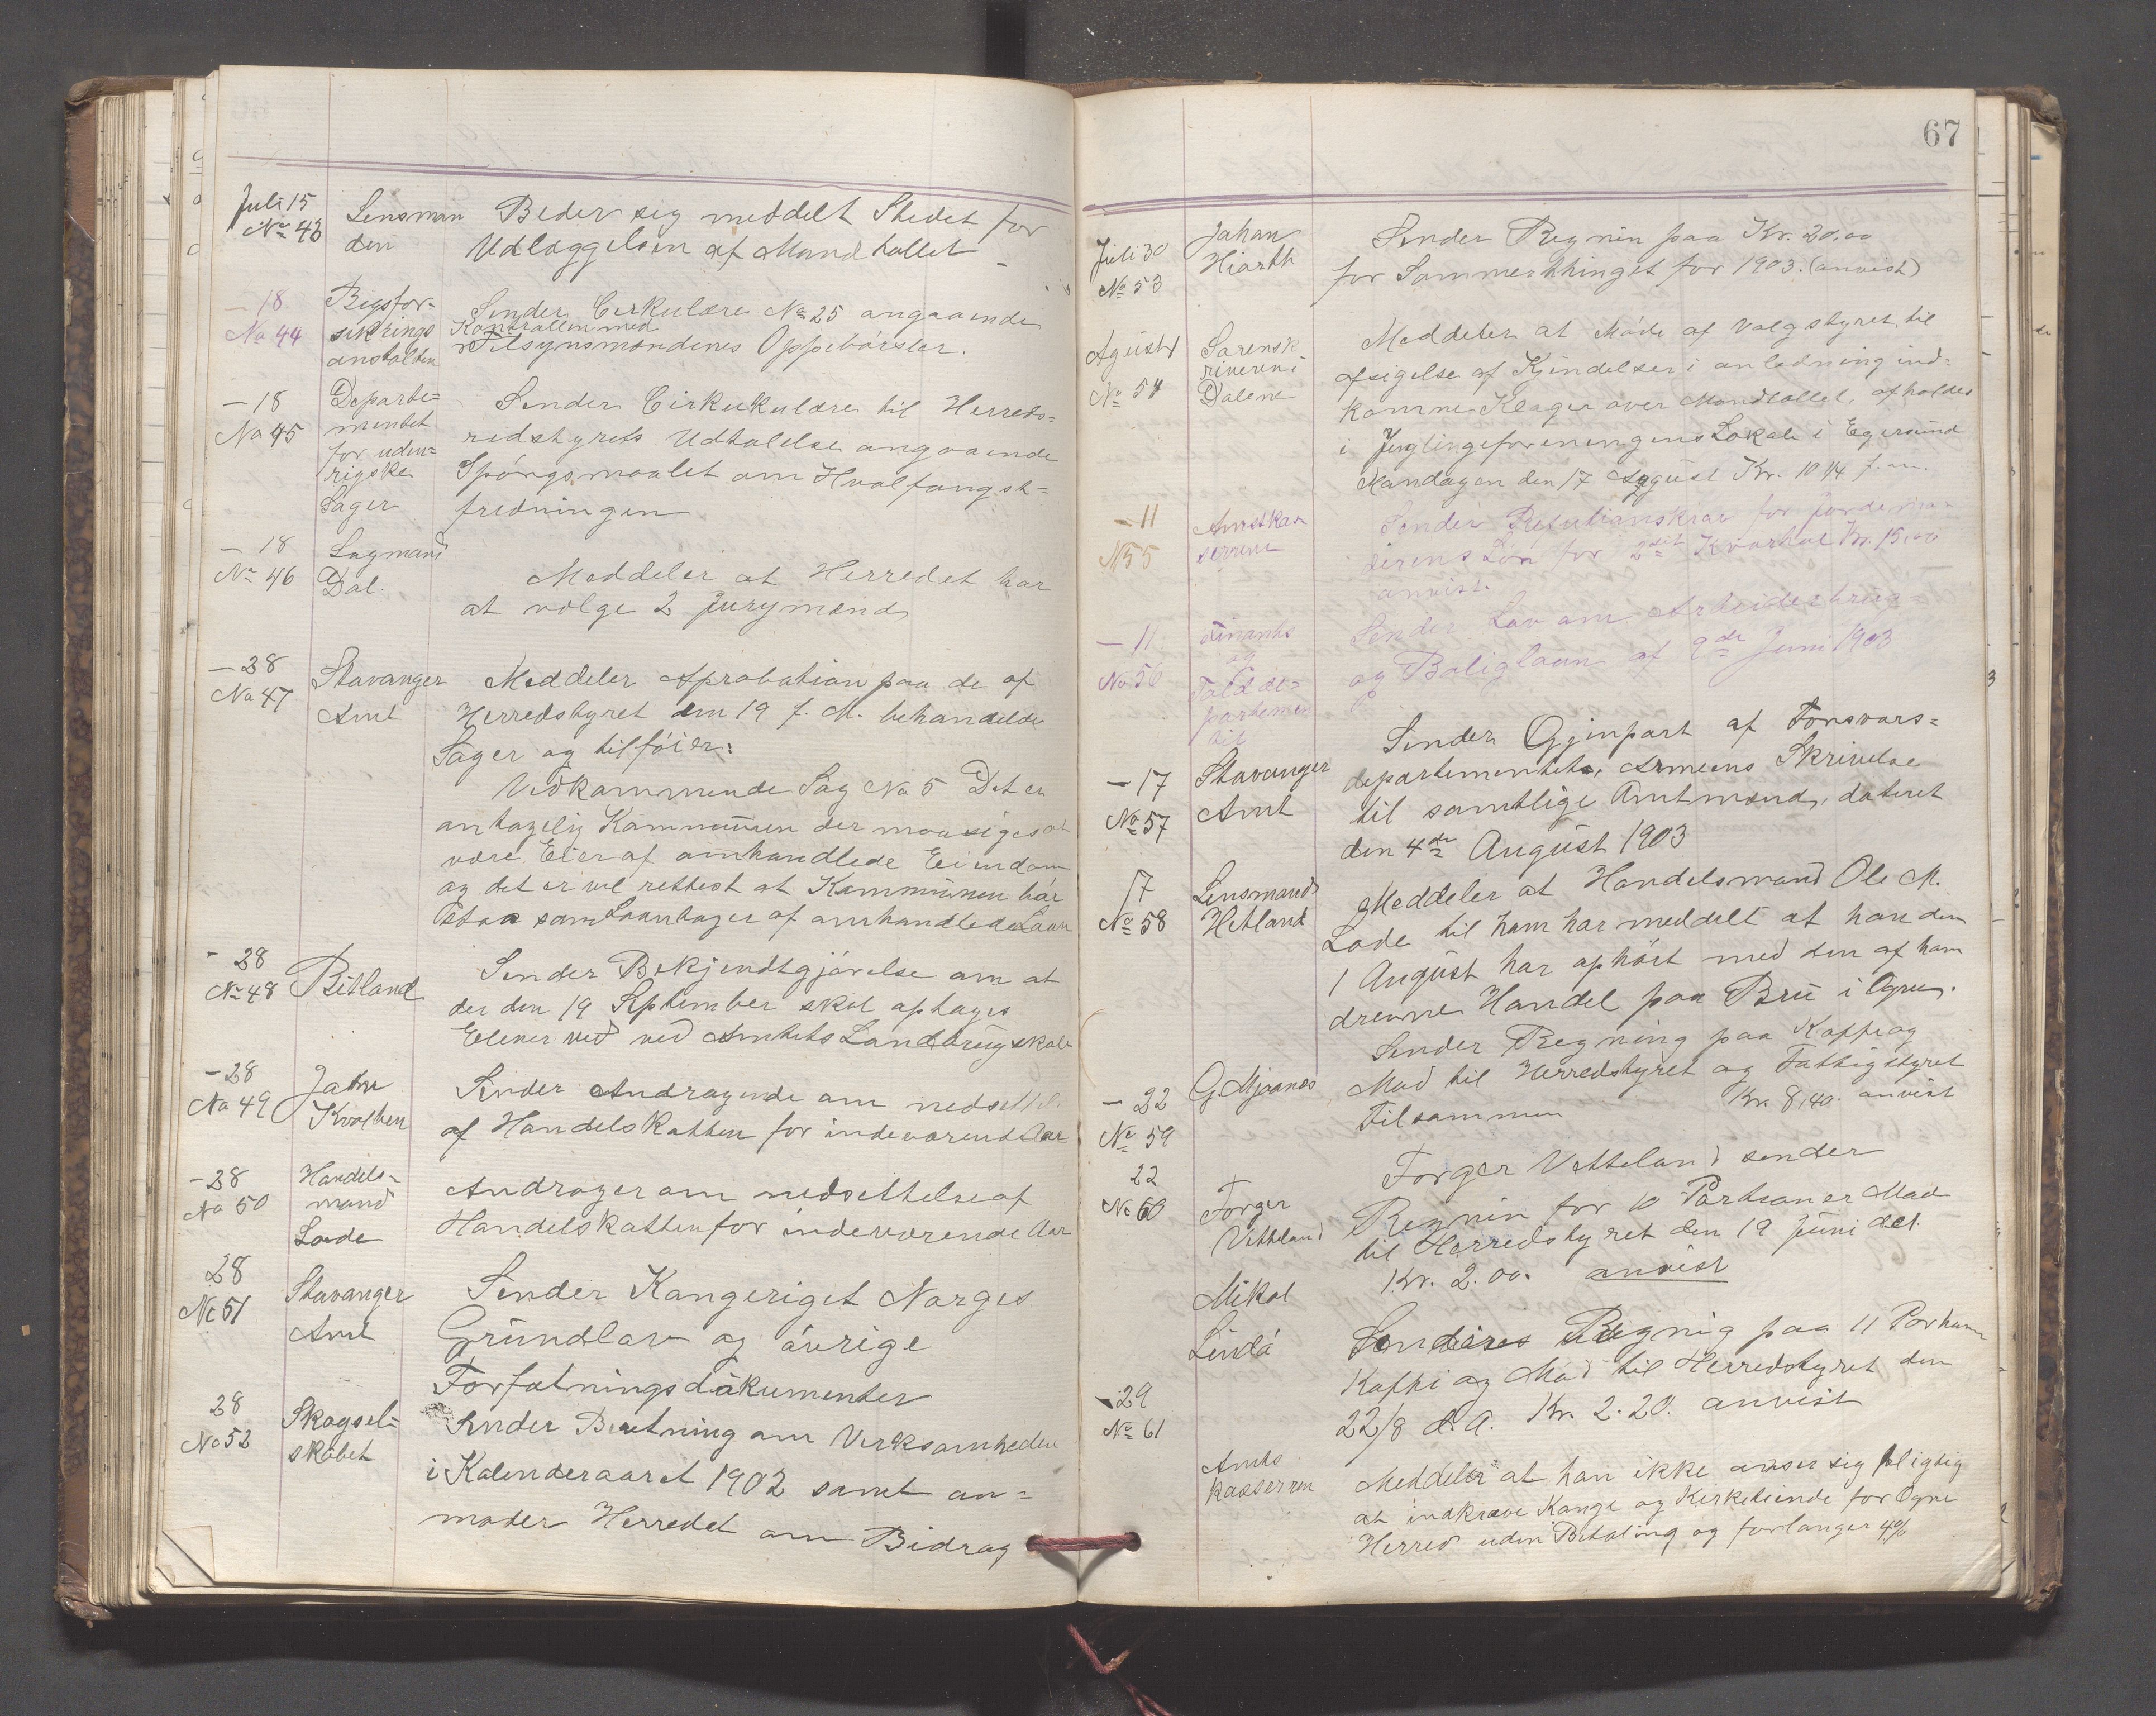 Juli 15 Lensman Beder sig meddelt Stedet for
No 43 den Udlæggelsen af Mandtallet
- 18. Rigsfor- Sender Cirkulære No 25 angaaende
No 44 sikrings Kontrollen med
anstalten Tilsynsmændenes Oppebørsler.
- 18 Departe= Sender Cirkukulære til Herreds=
No 45 mentet redstyrets Udtalelse angaaende
for uden= Spórgsmaalet om Hvalfangst=
rigske fredningen
Sager
- 18 Lagmand Meddeler at Herredet har
No 46 Dal. at vælge 2 Jurymænd
- 28 Stavanger Meddeler Aprobation paa de af
No 47 Amt Herredstyret den 19 f. M. behandelde
Sager og tilføier:
Vedkommende Sag No 5 Det er
antagelig Kommunen der maa siges at
være Eier af omhandlede Eiendom
og det er vel rettest at Kommunen bør
staa som Laantager af omhandlede Laan
- 28 Retland Sender Bekjendtgjørelse om at
No 48 der den 19 September skal optages
Elever ved ved Amtets Landbrugskole
- 28 Jahn Sender Andragende om nedsettelse
No 49 Kvalben af Handelskatten for indeværende Aar
- 28 Handels- Andrager om nedsettelse af
No 50 mand Handelskatten for indeværende Aar
Lode
28 Stavanger Sender Kongeriget Norges
No 51 Amt Grundlov og övrige
Forfatningsdokumenter
28 Skogsel= Sender Beretning om Virksomheden
No 52 skabet i Kalenderaaret 1902 samt an=
moder Herredet om Bidrag
67
Juli 30 Johan Sender Regnin paa Kr. 20.00
No 53 Hiorth for Sommerthinget for 1903. (anvist)
Agust Sorensk Meddeler at Møde af Valgstyret til
No 54 riveren i afsigelse af Kjendelser i anledning ind=
Dalene komne Klager over Mandtallet, afholdes
i Ynglingeforeningens Lokale i Egersund
Mandagen den 17 August Kl. 10 1/4 f. m.
- 11 Amtskas
N 55 sereren
derens Løn for 2det Kvartal Kr. 15,00
anvist.
- 11 Finants Sender Lov om Arbeiderbrug-
No 56 og og Boliglaan af 9de Juni 1903
Tolddе=
partemen
tet
- 17 Stavanger Sender Gjenpart af Forsvars=
No 57 Amt departementets, Armeens Skrivelse
til samtlige Amtmænd, dateret
den 4de August 1903
17 Lensmand Meddeler at Handelsmand Ole M.
No 58 Hetland Lode til ham har meddelt at han den
1 August har ophört med den af ham
drevne Handel paa Bru i Ogne.
- 22 G Mjaanes Sender Regning paa Kaffe og
No 59 Mad til Herredstyret og Fattigstyret
Tilsammen Kr. 8,40. anvist
22 Torger Torger Vetteland sender
No 60 Vetteland Regnin for 10 Portioner Mad
til Herredstyret den 19 Juni d.A.
Kr. 2.00. anvist
Mikal
Lindö Sender Regnig paa 11 Portioner
- 29 Kaffe og Mad til Herredstyret den
No 61 22/8 d. A. Kr. 2.20. anvist
Amts Meddeler at han ikke anser sig pligtig
kasseren at indkræve Konge og Kirketiende for Ogne
Herred uden Betaling og forlanger 4%